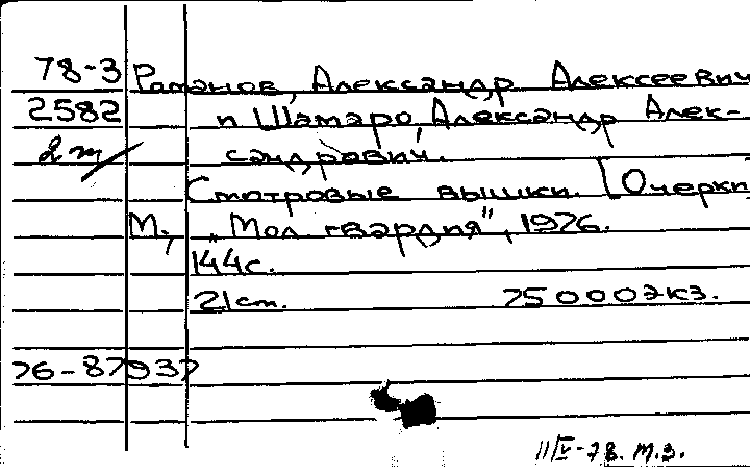 78-3 Романов, Александр Алексеевич
2582 и Шамаро, Александр Алек-
2 т сандрович.
Смотровые вышки. [Очерки
М., „Мол. гвардия", 1976.
144с.
21 см. 75000 экз.
76-87937
11/V-78. М.З.